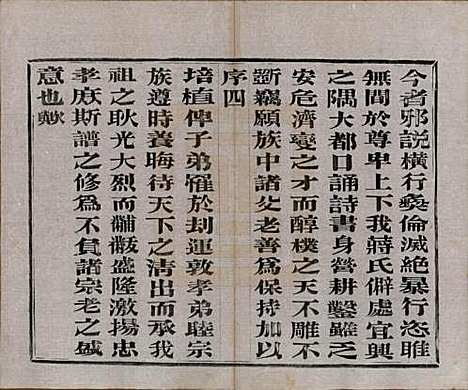 今者邪說橫行彝倫滅絕暴行恣睢
無間於尊卑上下我蔣氏僻處宜興
之隅大都口誦詩書身營耕鑿雖乏
安危濟變之才而醇樸之天不雕不
斵竊願族中諸父老善為保持加以
序四
培植俾子弟罹於刦運敦孝弟睦宗
族遵時養晦待天下之清出而承我
祖之耿光大烈而黼黻盛隆激揚忠
孝庶斯譜之修為不負諸宗老之盛
意也歟